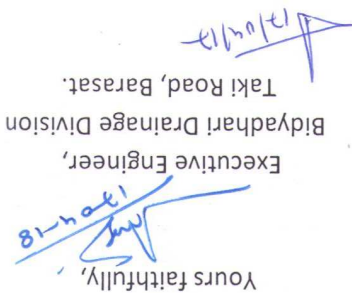 Yours faithfully,
17-04-18
Executive Engineer,
Bidyadhari Drainage Division
Taki Road, Barasat.
17/04/17